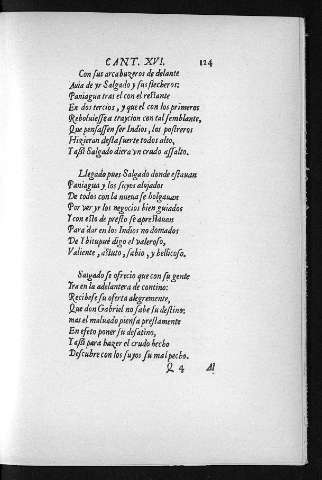 CANT. XVI. 124
Con sus arcabuzeros de delante
Auia de yr Salgado y sus flecheros;
Paniagua tras el con el restante
En dos tercios, y que el con los primeros
Reboluiesse a traycion con tal semblante,
Que pensassen ser Indios, los postreros
Hizieran desta suerte todos alto,
Y assi Salgado diera vn crudo assalto.
Llegado pues Salgado donde estauan
Paniagua y los suyos alojados
De todos con la nueua se holgauan
Por yer yr los negocios bien guiados
Y con esto de presto se aprestauan
Para dar en los Indios no domados
De Ybitupuè digo el valeroso,
Valiente, astuto, sabio, y bellicoso.
Salgado se ofrecio que con su gente
Yra en la adelantera de contino:
Recibese su oferta alegremente,
Que don Gabriel no sabe su destino;
mas el maluado piensa prestamente
En efeto poner su desatino,
Y assi para hazer el crudo hecho
Descubre con los suyos su mal pecho.
Q 4 Al